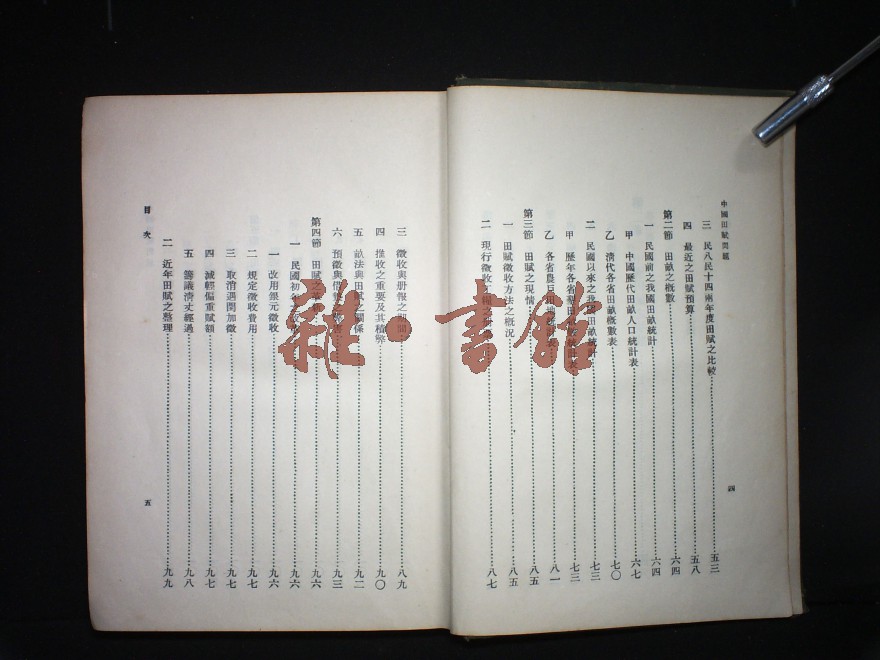 中國田賦問題
三 民八民十四兩年度田賦之比較 五三
四 最近之田賦預算 五八
第二節 田畝之概數 六四
一 民國前之我國田畝統計 六四
甲 中國歷代田畝人口統計表 六七
乙 清代各省田畝概數表 七〇
二 民國以來之我國田畝統計 七三
甲 歷年各省 七三
乙 各省農戶田地 八一
第三節 田賦之現情 八五
一 田賦徵收方法之概況 八五
二 現行徵收 八七
四
三 徵收與册報之期間 八九
四 推收之重要及其積弊 九〇
五 畝法與田賦之關係 九二
六 預徵與借 九三
第四節 田賦之 九六
一 民國初年之 九六
一 改用銀元徵收 九六
二 規定徵收費用 九七
三 取消遇閏加徵 九七
四 減輕偏重賦額 九七
五 籌議清丈經過 九八
二 近年田賦之整理 九九
目次
五
雜·書館